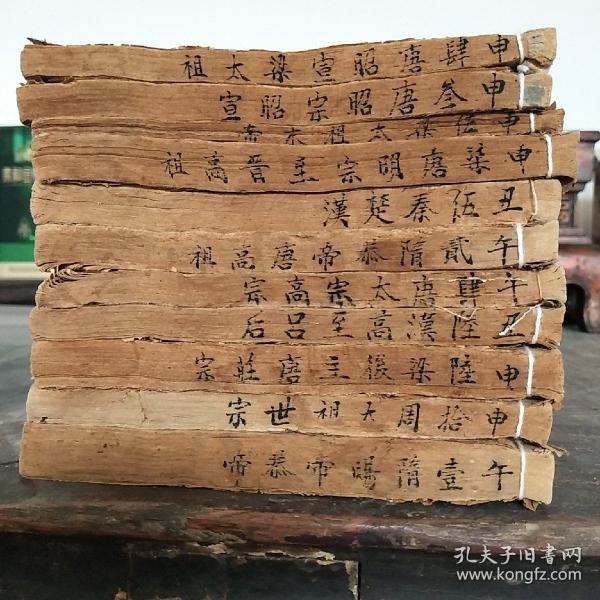 申肆唐昭宣梁太祖
申叁唐昭宗昭宣
申伍梁太祖太帝
申柒唐明宗至晋高祖
丑伍秦楚漢
午貳隋恭帝唐高祖
午肆唐太宗高宗
丑陸漢高至吕后
申陸梁後主唐莊宗
申拾周太祖世宗
午壹隋煬帝恭帝
孔夫子旧書网
www.kongfz.com